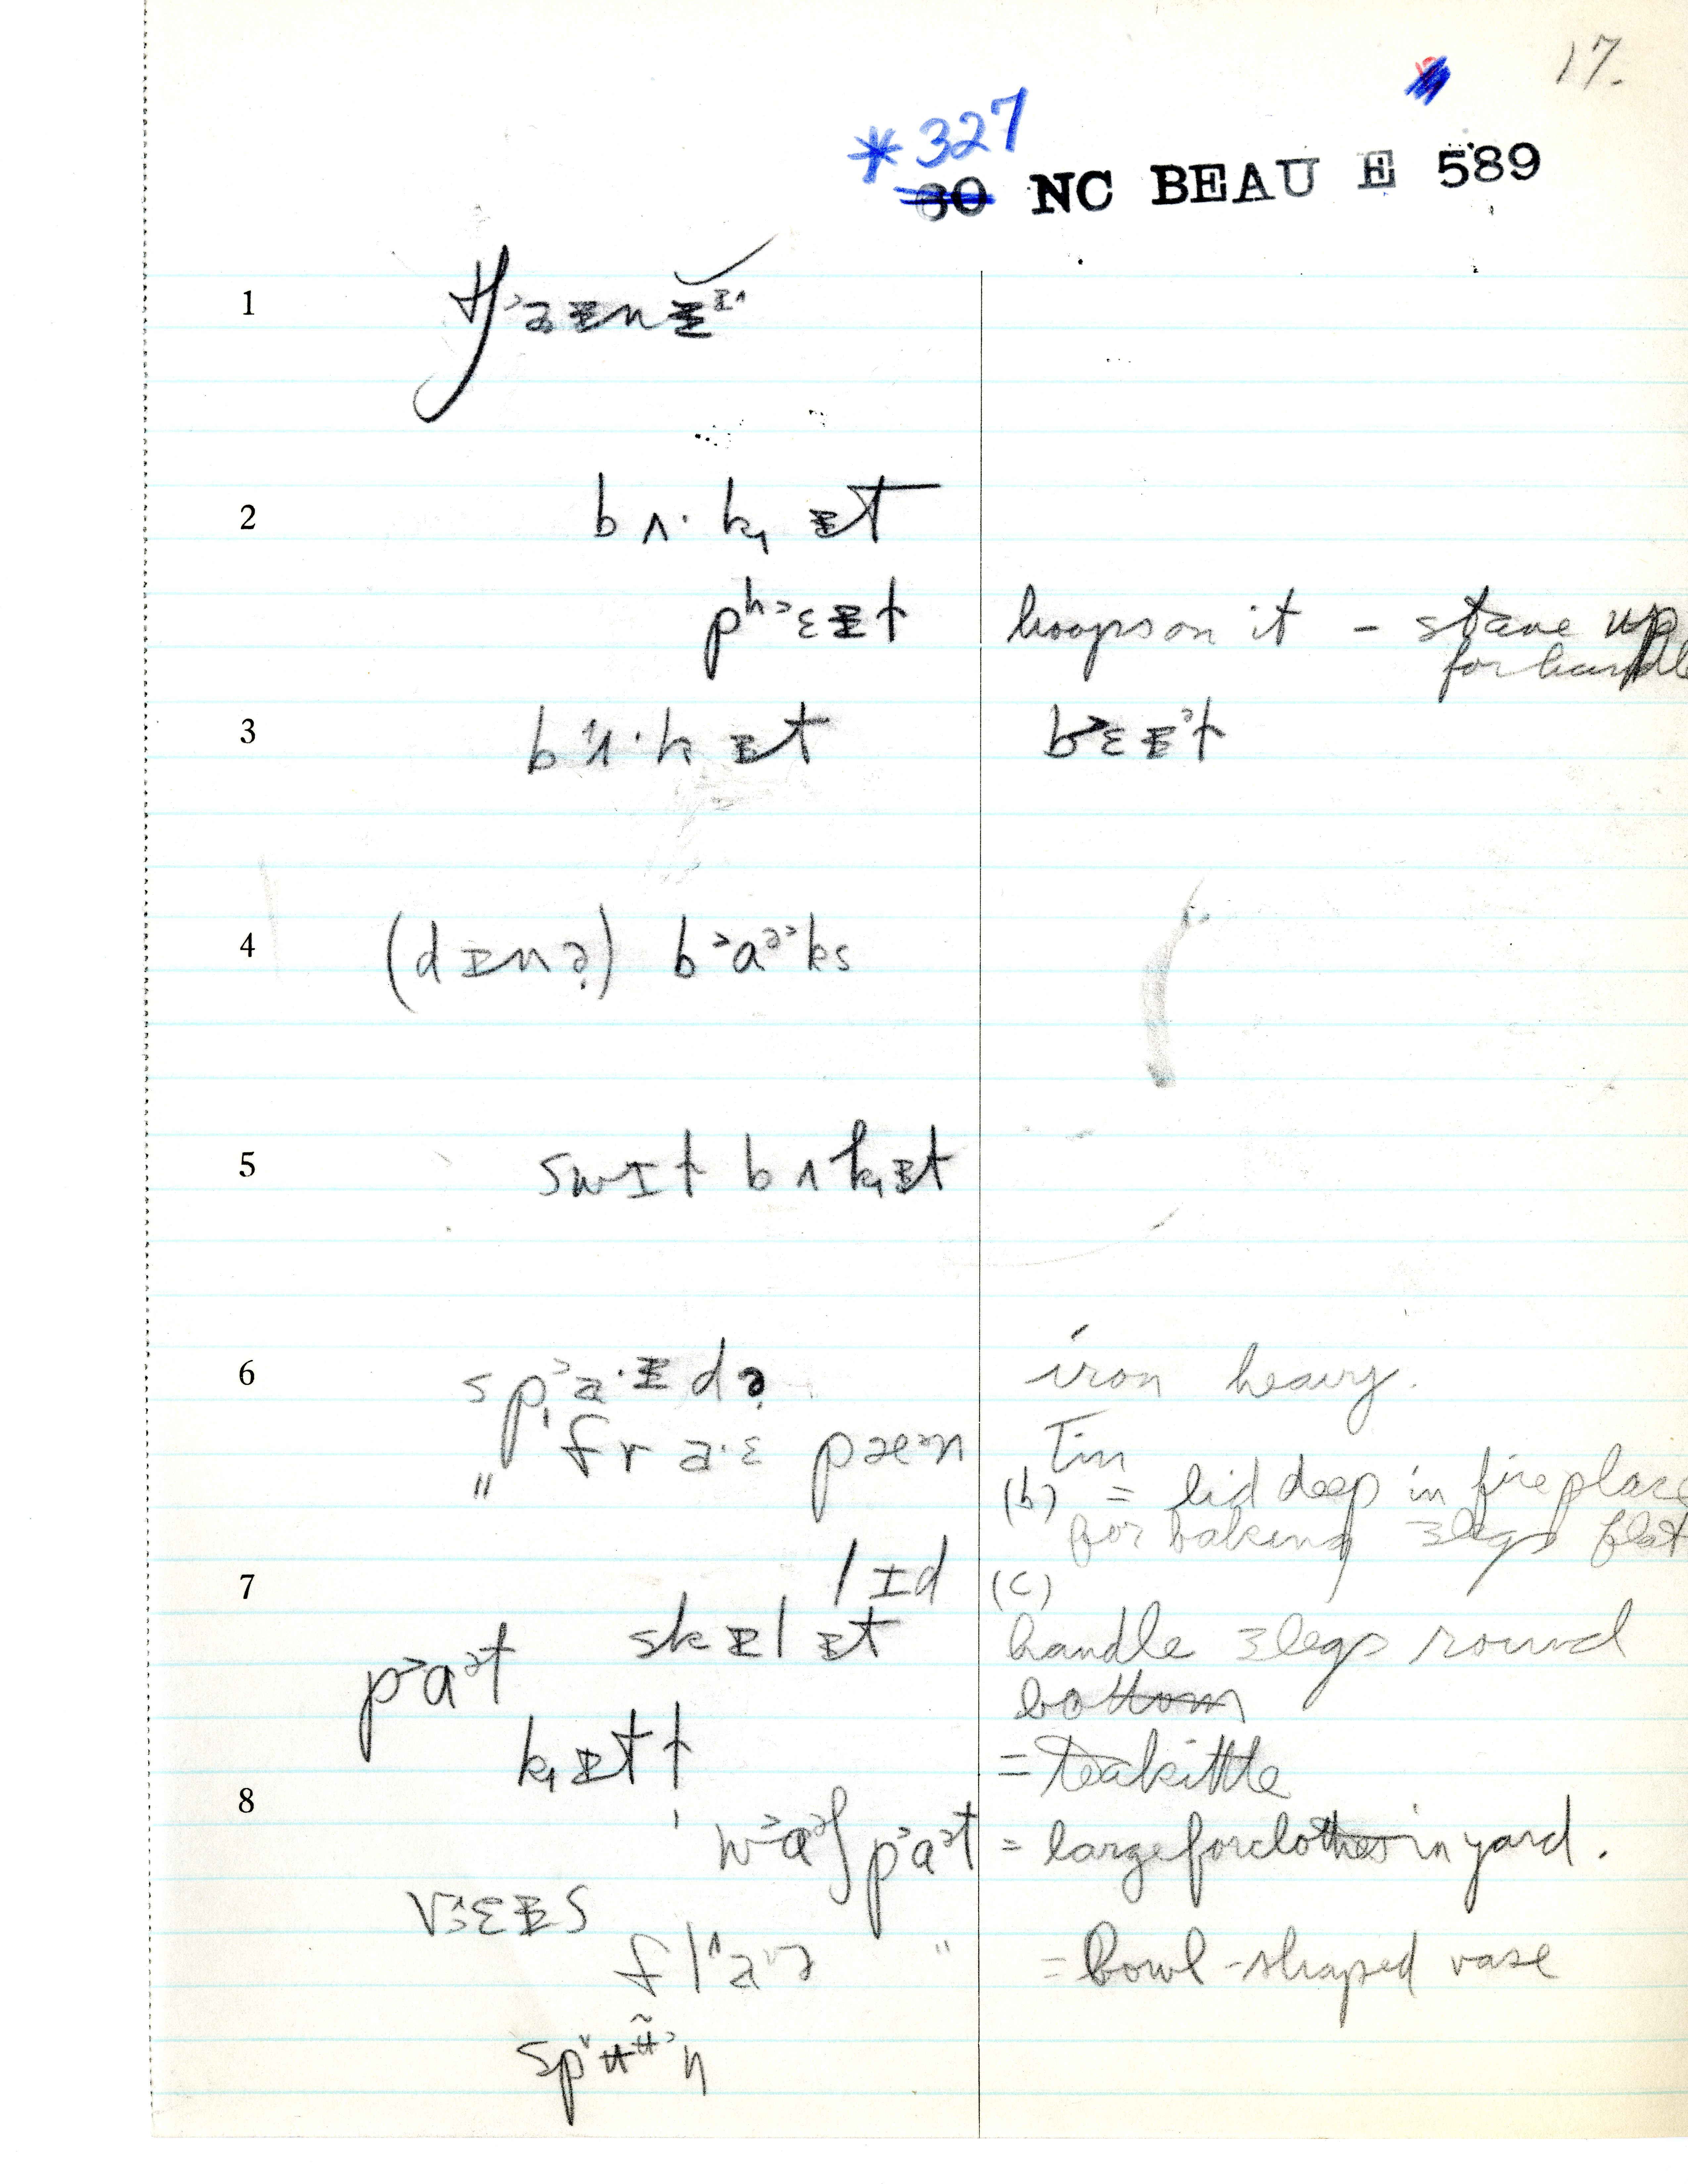 17.
*327
30 NC BEAU E 589
1
2 bʌ·k̟ ᵻt
pʰ˃ɛᵻt hoops on it - stave up
for handle
3 bʌ·k ᵻt b˃ɛᵻᵊt
4 (dᵻnə̣) b˃aᵊ˃ks
5 swɪt bʌk̟ᵻt
6 sp˃a·ᵻdə̣ iron heavy.
" fra·ɛ pæᵊn Tin
(b) = lid deep in fireplace
for baking 3 legs flat
7 lɪd (c)
skᵻlᵻt handle 3 legs round
p˃aᵊt bottom
k̟ᵻtt = teakittle
8 w˃aᵊʃ p˃aᵊt = large for clothes in yard.
" = bowl-shaped vase